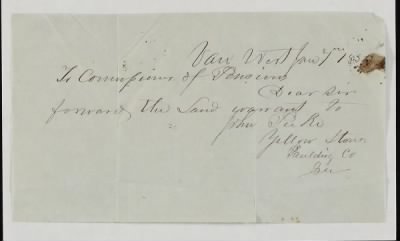 Van West Jany 7th 185
To Commissioner of Pensions
Dear Sir
forward the Land warrant to
John
Yellow Stone
Paulding Co
Geo